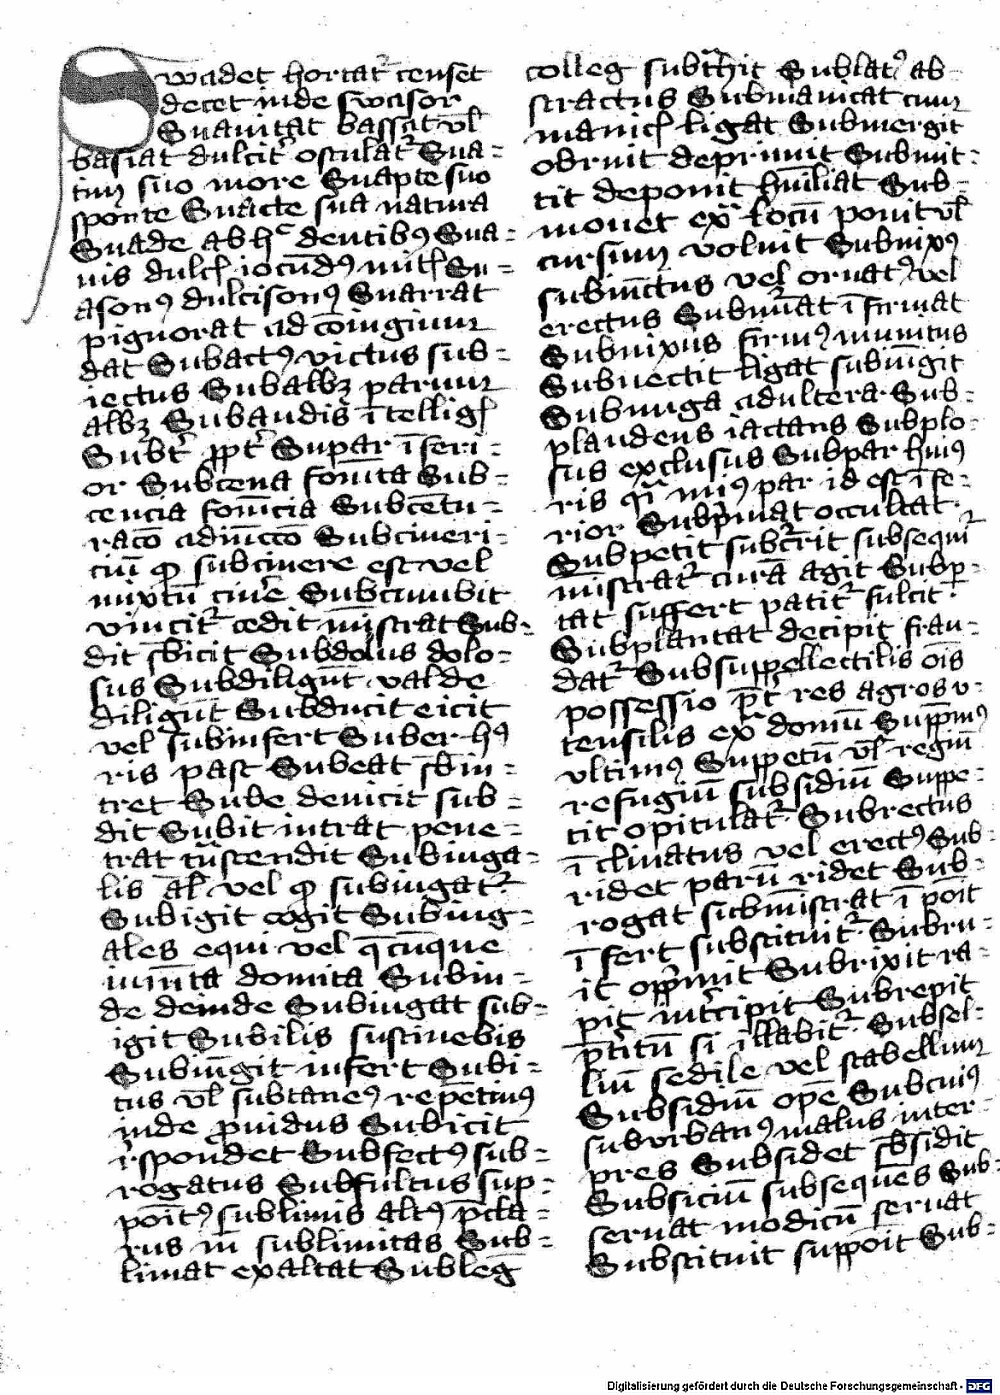 Swadet hortat᷑ censet
decet inde swasor
Suauitat bassat vl̄
basiat dulcit᷑ osculat᷑ Sua-
tim suo more Suapte suo
sponte Suacte sua natura
Suade ab hͨ dentibꝯ Sua-
uis dulcꝭ iocūdꝯ mitꝭ Su-
asonꝯ dulcisonꝯ Suarrat
pignorat ad cōiugium
dat Subactꝯ victus sub-
iectus Subalbꝫ parum
albꝫ Subaudis ītelligꝭ
Subt᷑ ꝓpt᷑ Supar īferi-
or Subcena fōnita Sub-
cencia fōnicia Subcētu-
racō adiūccō Subcineri-
ciū ꝙ subcinere est vel
mixtū cin̄e Subcumbit
vincit᷑ cedit mīstrat Sub-
dit sb̄icit Subdolus dolo-
sus Subdiligūt valde
diligūt Subducit eicit
vel subinfert Suber hꝯ
ris past Subeat sb̄in-
tret Sube deuicit sub-
dit Subit intrat pene-
trat tn̄scendit Subiuga-
lis al̄ vel ꝙ subiugat᷑
Subigit cogit Subiug-
ales equi vel q̄cūque
iumēta domita Subin-
de deinde Subiugat sub-
igit Subilis sustinebis
Subiūgit infert Subi-
tus vl̄ subtaneꝯ repētinꝯ
inde ꝓuidus Subicit
r̄spondet Subfectꝯ sub-
rogatus Subfultus sup-
poītꝯ sublimis altꝯ p̄cla-
rus īn sublimitas Sub-
limat exaltat Subleḡ
colleg subt᷑hit Sublatꝯ ab-
stractus Submanicat cum
manicꝭ ligat Submergit
obruit deprimit Submit-
tit deponit hūiliat Sub-
mouet ex᷑ locū ponit vl̄
cursum voluit Subnixꝯ
subiūctus vel ornatꝯ vel
erectus Submūat ī firmat
Subnixus firmꝯ munitus
Subnectit ligat subiūgit
Subnuga adultera Sub-
plaudens iactans Subplo-
sus exclusus Subpar huiꝯ
ris qͥ miꝯ par id est īfe-
rior Subp̄mat occultat
Subpetit subcr̄rit subsequit᷑
mīstrat᷑ curā agit Subp-
tat suffert patit᷑ fulcit
Subplantat decipit frau-
dat᷑ Subsuppellectilis oīs
possessio p̄t᷑ res agros v-
tensilis ex᷑ domū Supp̄mꝯ
vltimꝯ Suppetū vl̄ regiū
refugiū subsidiū Suppe-
tit opitulat᷑ Subrectus
īclinatus vel erectꝯ Sub-
ridet parū ridet Sub-
rogat submīstrat īpoīt
īfert substituit᷑ Subru-
it opp̄mit Subrixit ra-
pit int᷑cipit Subrepit
p̄titū si illabit᷑ Subsel-
liū sedile vel scabellum
Subsidiū opē Subcuiꝯ
suburbanꝯ malus inter-
pres Subsidet sb̄sidit
Subsiciū subsequēs Sub-
seruat modicū seruat
Substituit suppoīt Sub-
Digitalisierung gefördert durch die Deutsche Forschungsgemeinschaft - DFG